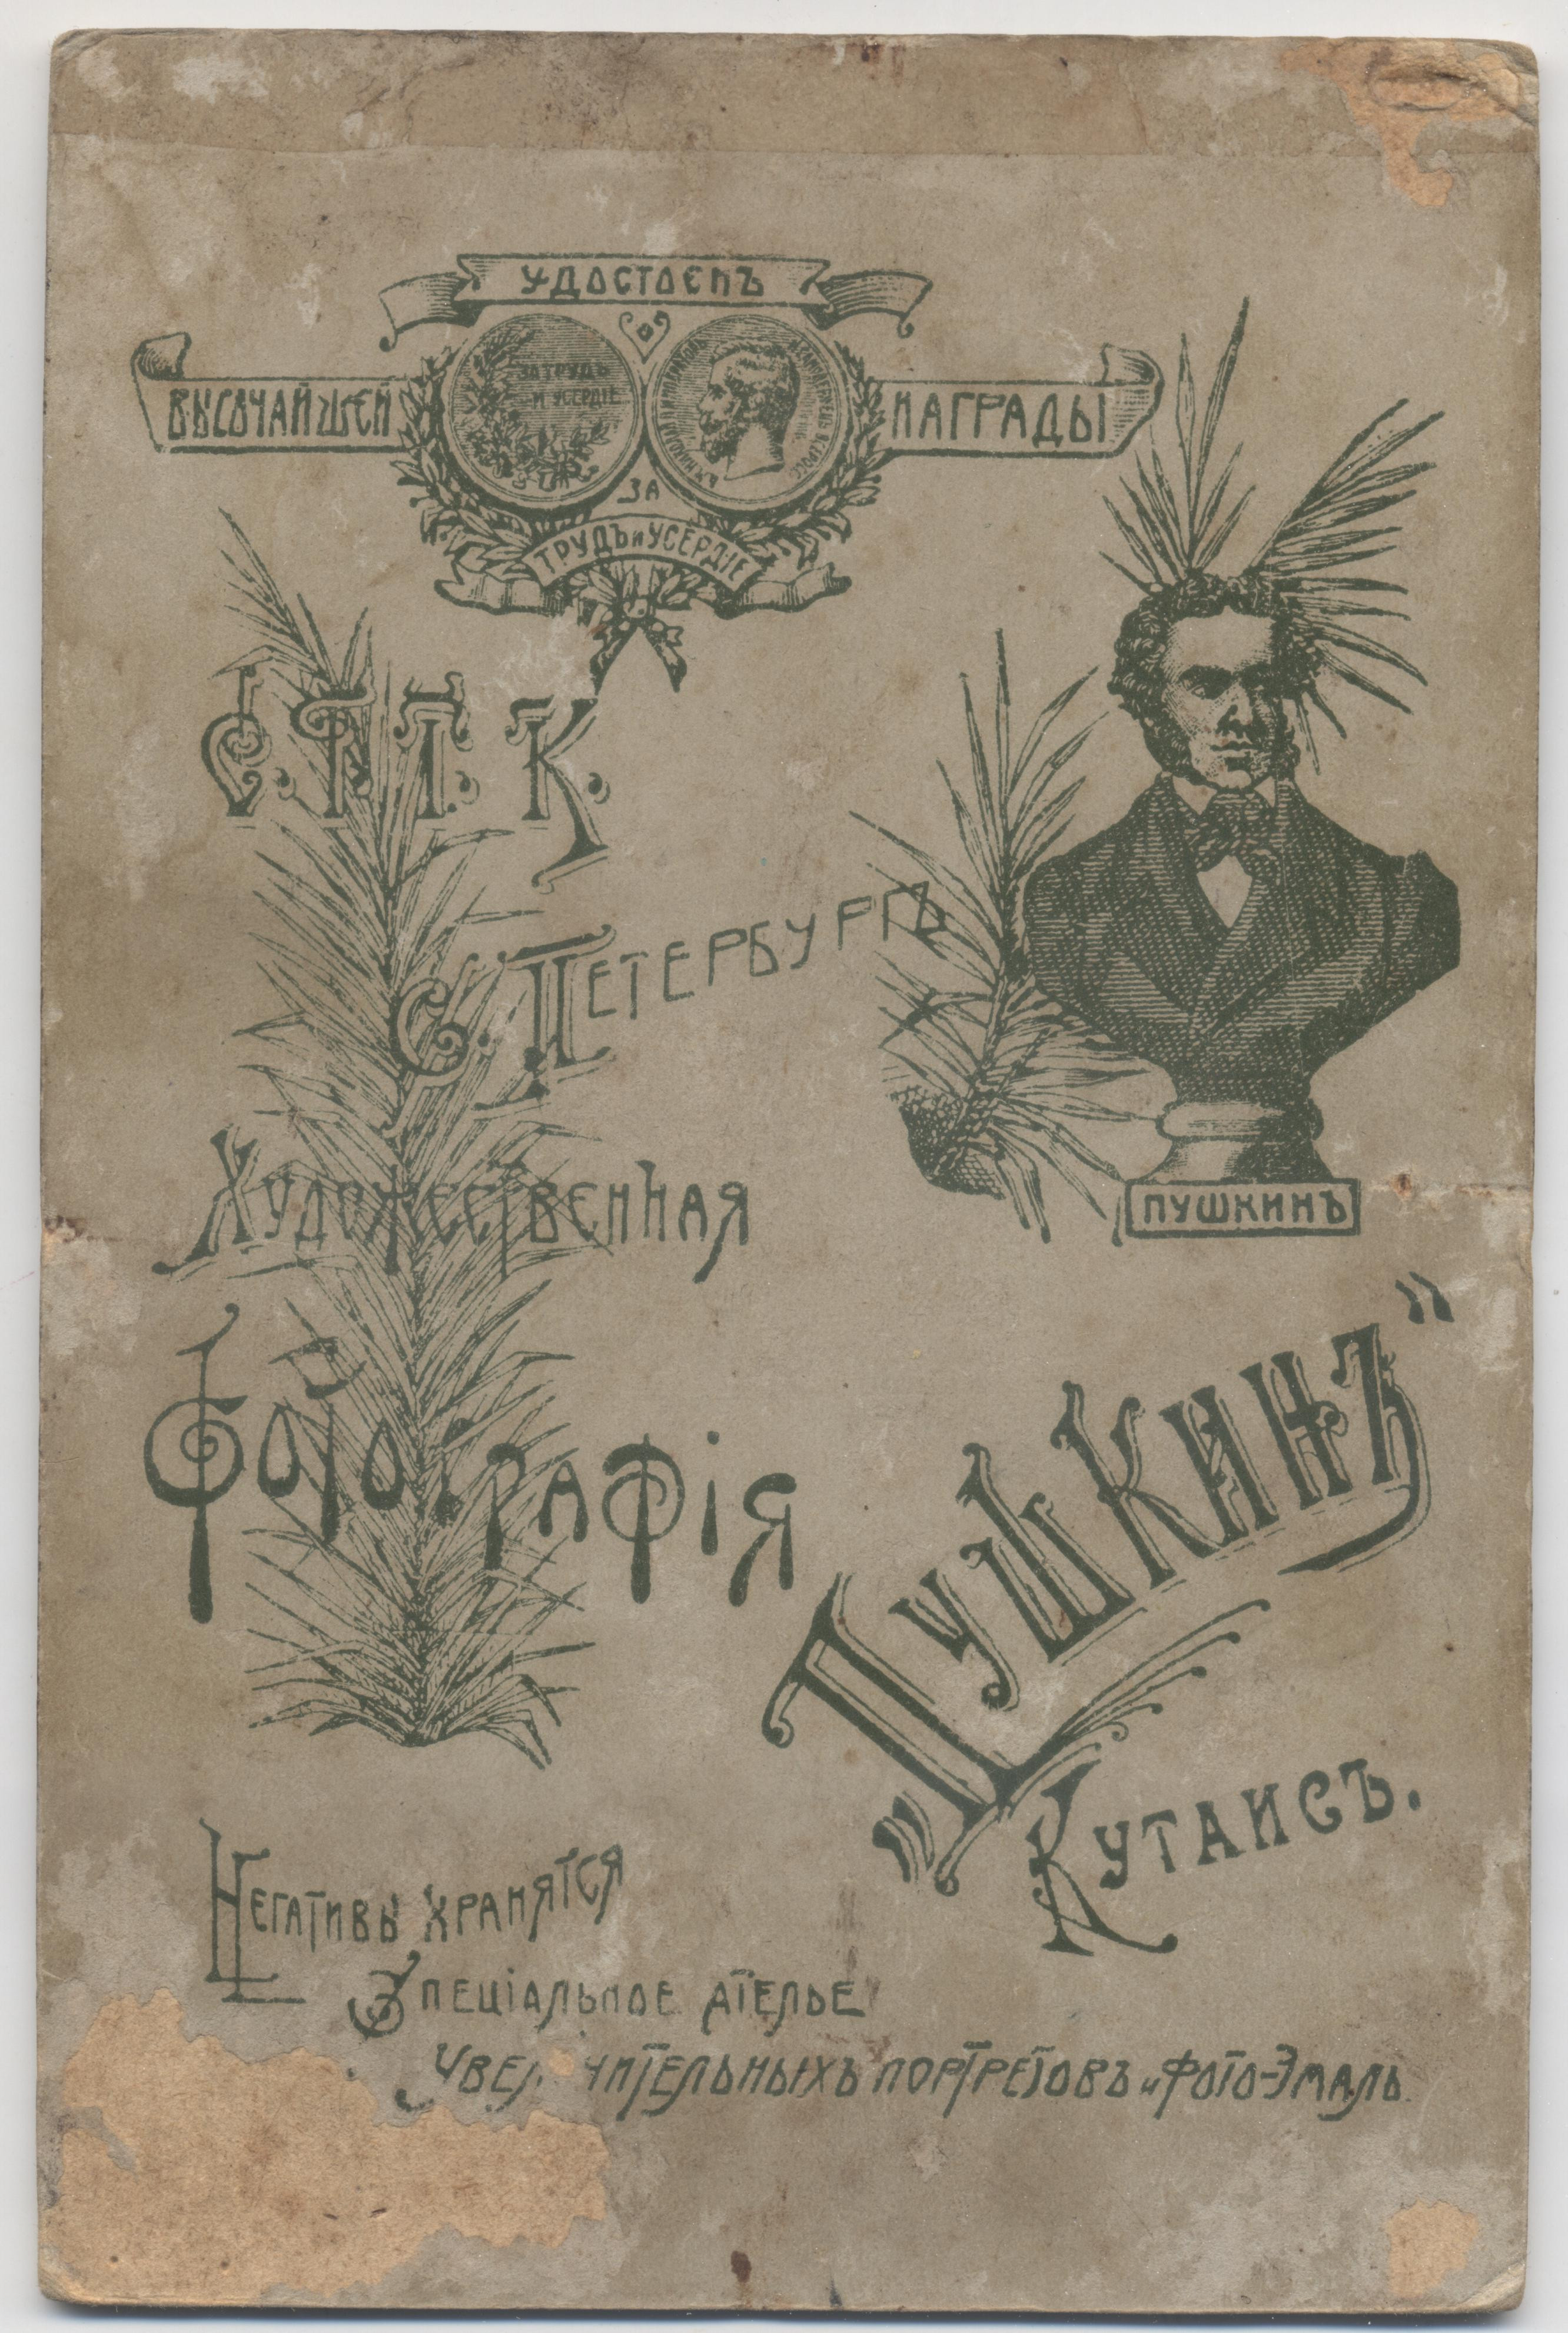 УДОСТОЕНЪ
ВЫСОЧАЙШЕЙ НАГРАДЫ
ЗА ТРУДЪ
И УСЕРДІЕ
ЗА
ТРУДЪ и УСЕРДІЕ
С. П. Г. К.
С. ПЕТЕРБУРГЪ
ХУДОЖЕСТВЕННАЯ
ПУШКИНЪ
ФОТОГРАФІЯ
„ПУШКИНЪ"
КУТАИСЪ.
НЕГАТИВЫ ХРАНЯТСЯ
СПЕЦІАЛЬНОЕ АТЕЛЬЕ
ПОРТРЕТОВЪ и ФОТО-ЭМАЛЬ